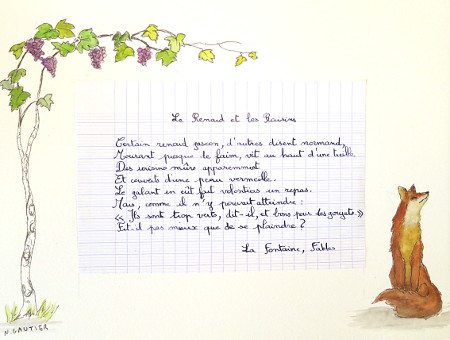 Le Renard et les Raisins
Certain renard gascon, d'autres disent normand,
Mourant presque de faim, vit au haut d'une treille
Des raisins mûrs apparemment
Et couverts d'une peau vermeille.
Le galant en eût fait volontiers un repas.
Mais, comme il n'y pouvait atteindre :
« Ils sont trop verts, dit-il, et bons pour les goujats »
Fit-il pas mieux que de se plaindre ?
La Fontaine, Fables
N. GAUTIER